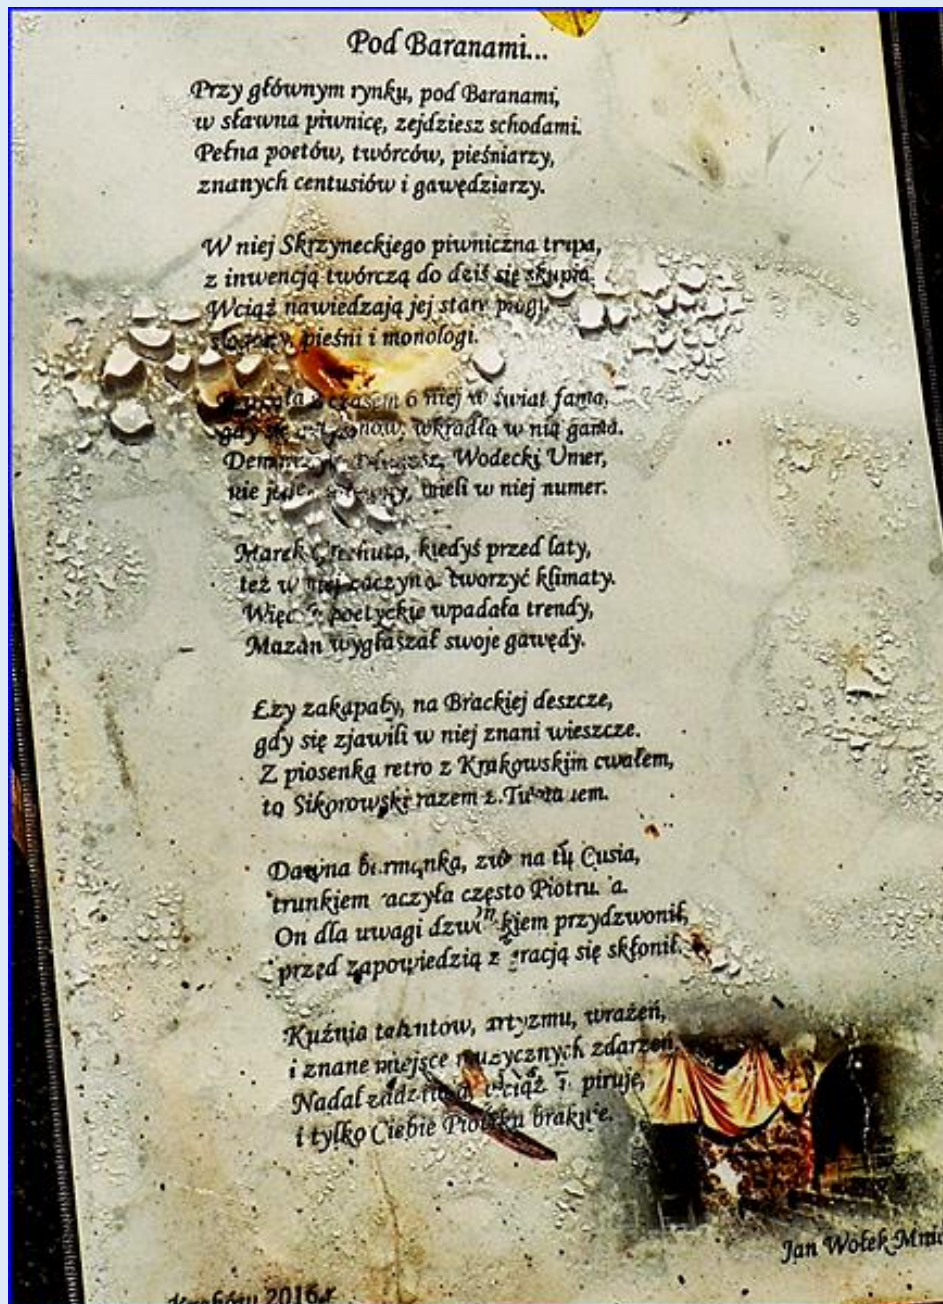 Pod Baranami...
Przy głównym rynku, pod Baranami,
w sławna piwnicę, zejdziesz schodami.
Pełna poetów, twórców, pieśniarzy,
znanych centusiów i gawędziarzy.
W niej Skrzyneckiego piwniczna trupa,
z inwencją twórczą do dziś się skupia.
Wciąż nawiedzają jej stare progi,
pieśni i monologi.
z czasem o niej w świat fama,
gdy wkradła w nią gama.
Wodecki Umer,
nie mieli w niej numer.
Marek Grechuta, kiedyś przed laty,
też w niej zaczynał tworzyć klimaty.
Więc poetyckie wpadała trendy,
Mazan wygłaszał swoje gawędy.
Łzy zakapały, na Brackiej deszcze,
gdy się zjawili w niej znani wieszcze.
Z piosenką retro z Krakowskim cwałem,
to Sikorowski razem z
Dawna barmanka, zwana tu Cusia,
trunkiem raczyła często Piotrusia.
On dla uwagi dzwonkiem przydzwonił,
przed zapowiedzią z gracją się skłonił.
Kuźnia talentów, artyzmu, wrażeń,
i znane miejsce muzycznych zdarzeń.
Nadal wciąż
i tylko Ciebie Piotrku brakuje.
Jan Wołek
Kraków 2016r